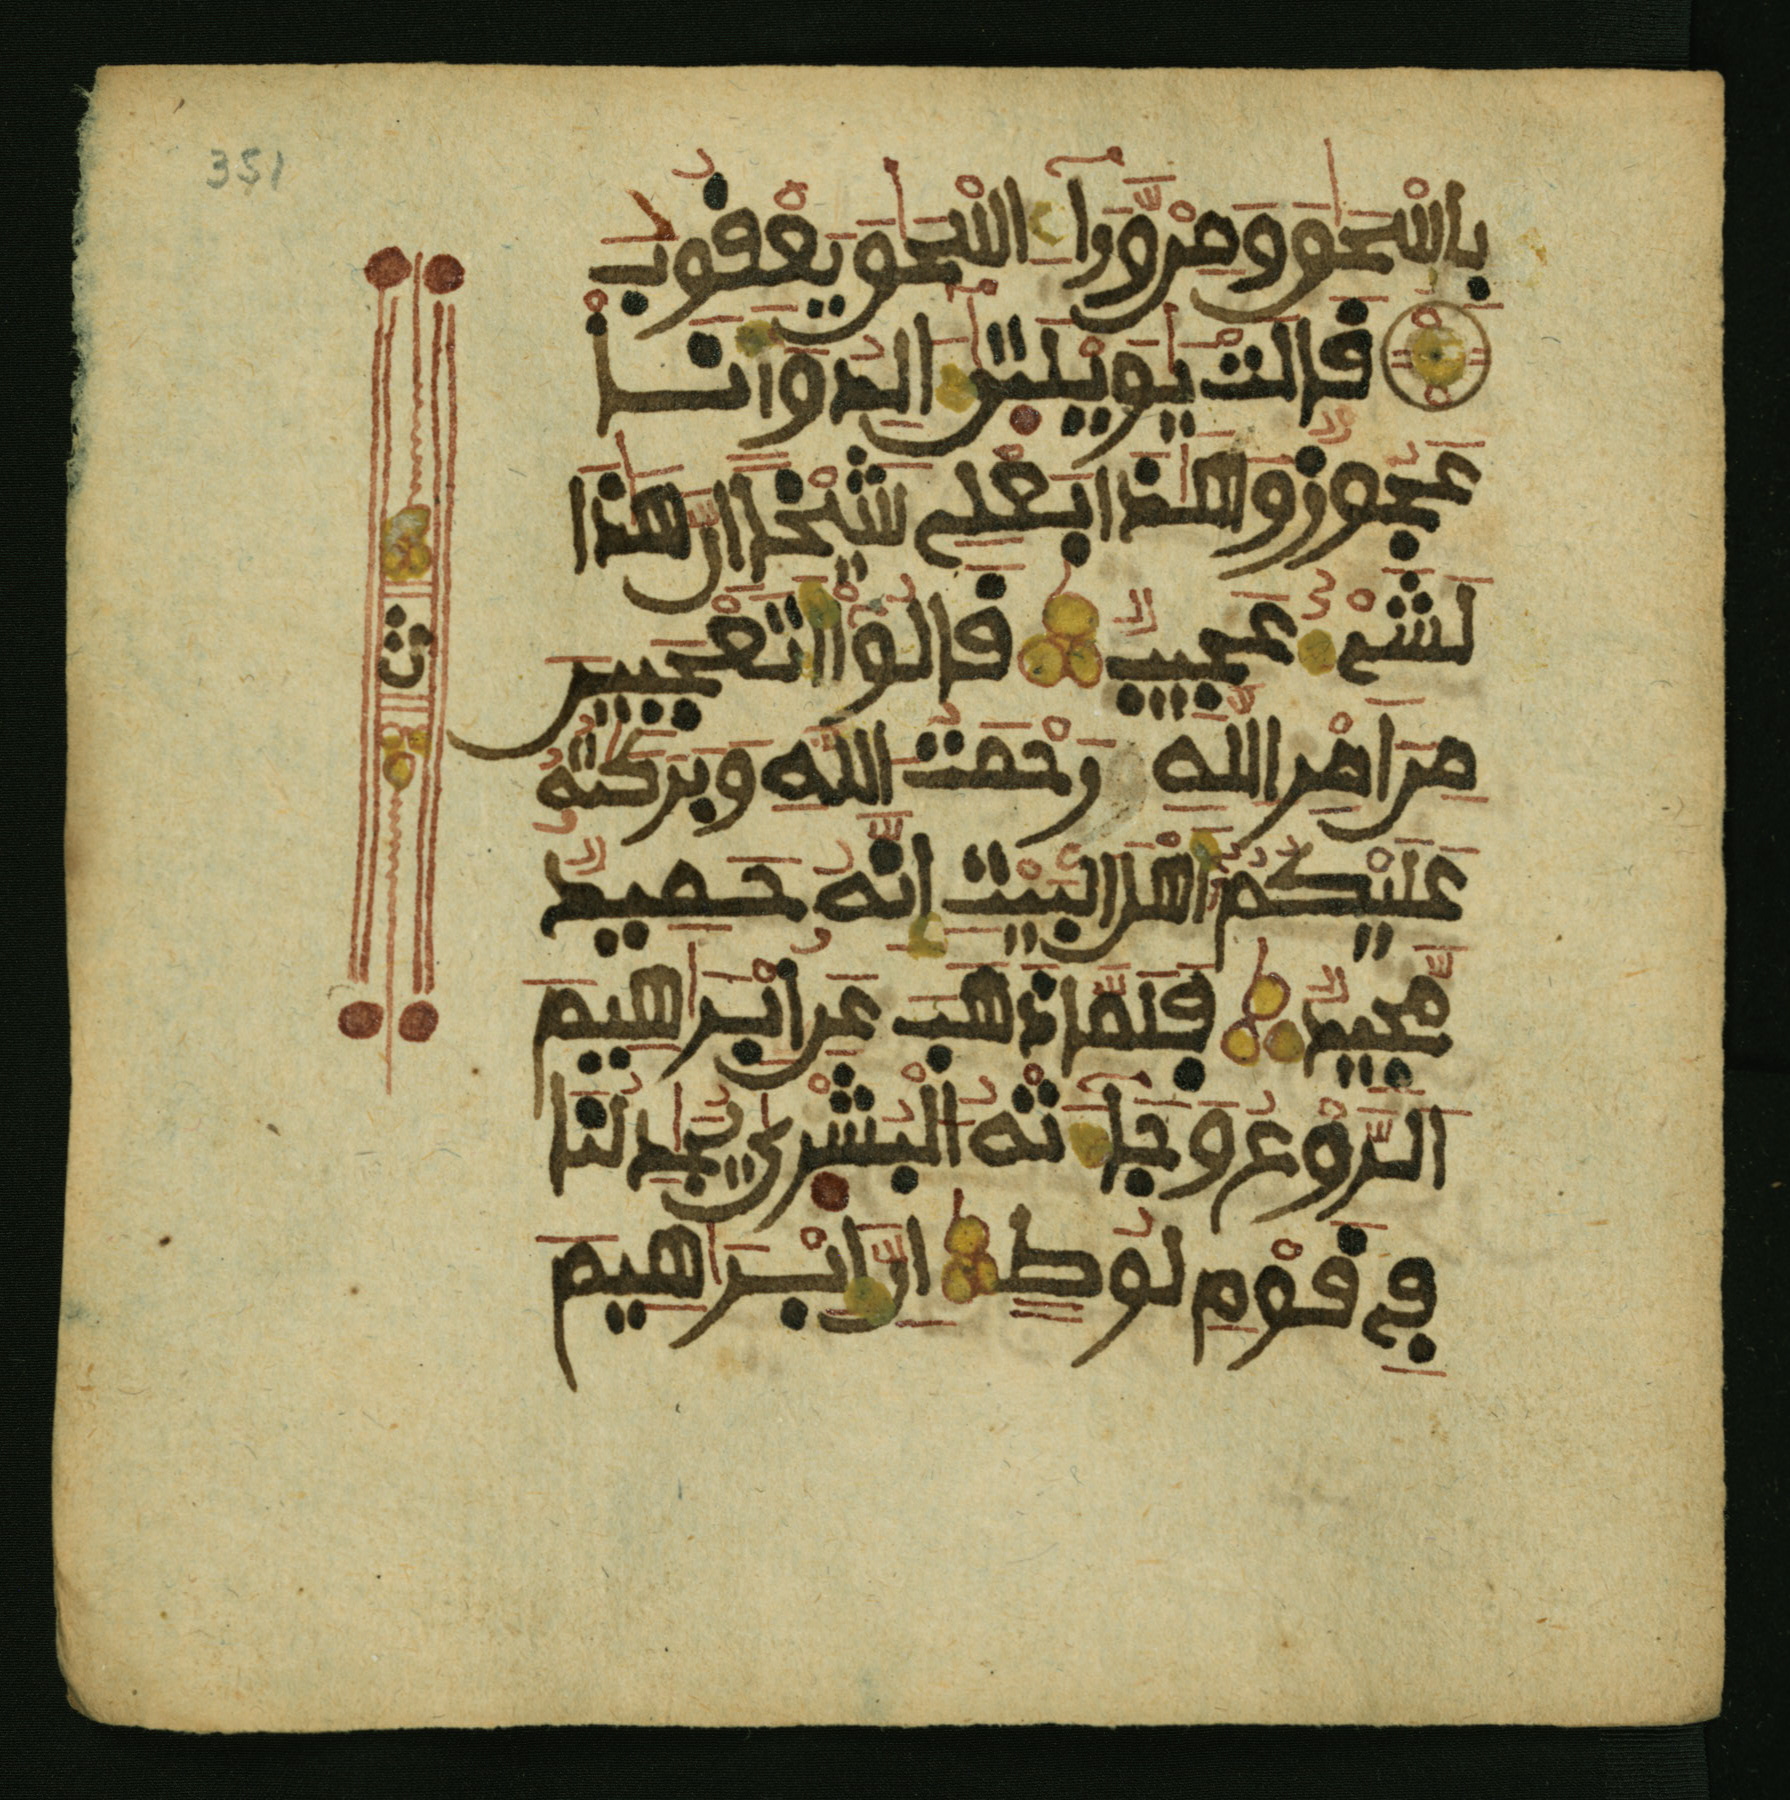 351
بِإِسْحَٰقَ وَمِنْ وَّرَآءِ اسْحَٰقَ يَعْقُوبُ
قَالَتْ يَٰوَيْلَتٰىٓ ءَالِدُ وَأَنَا
عَجُوزٌ وَهَٰذَا بَعْلِے شَيْخاً إِنَّ هَٰذَا
لَشَےْءٌ عَجِيبٌ قَالُوٓاْ أَتَعْجَبِينَ
مِنَ امْرِ اللَّهِ رَحْمَتُ اللَّهِ وَبَرَكَٰتُهُۥ
عَلَيْكُمُۥٓ أَهْلَ الْبَيْتِ إِنَّهُۥ حَمِيدٌ
مَّجِيدٌ فَلَمَّا ذَهَبَ عَنِ ابْرَٰهِيمَ
الرَّوْعُ وَجَآءَتْهُ الْبُشْرٰى يُجَٰدِلُنَا
فِے قَوْمِ لُوطٍ إِنَّ إِبْرَٰهِيمَ
ث